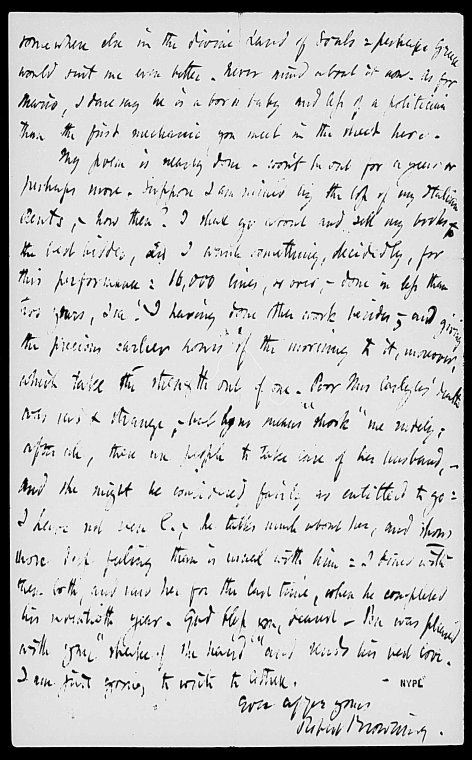 somewhere else in the divine Land of Souls = perhaps Greece
would suit me even better. Never mind about it now. As for
Mario, I dare say he is a bore & baby and less of a politician
than the first mechanic you meet in the street here.
My poem is nearly done - won't be out for a year or
perhaps more. Suppose I am ruined by the loss of my Italian
Rents, - how then? I shall go about and sell my books to
the best bidder, and I want something, decidedly, for
this performance = 16,000 lines, or over, - done in less than
two years, Isa! I having done other work besides, - and giving
the precious earlier hours of the morning to it, moreover,
which take the strength out of one. Poor Mrs Carlyle's death
was sad & strange, - but by no means "shook" me rudely;
after all, there are people to take care of her husband, -
and she might be considered fairly as entitled to go =
I have not seen C., - he talks much about her, and shows
more soft feeling than is usual with him = I dined with
them both, and saw her for the last time, when he completed
his year. God bless you, dearest - Pen was pleased
with your "shake of the hand" and sends his best love.
I am just going to write to
Ever affy yours
Robert Browning.
NYPL